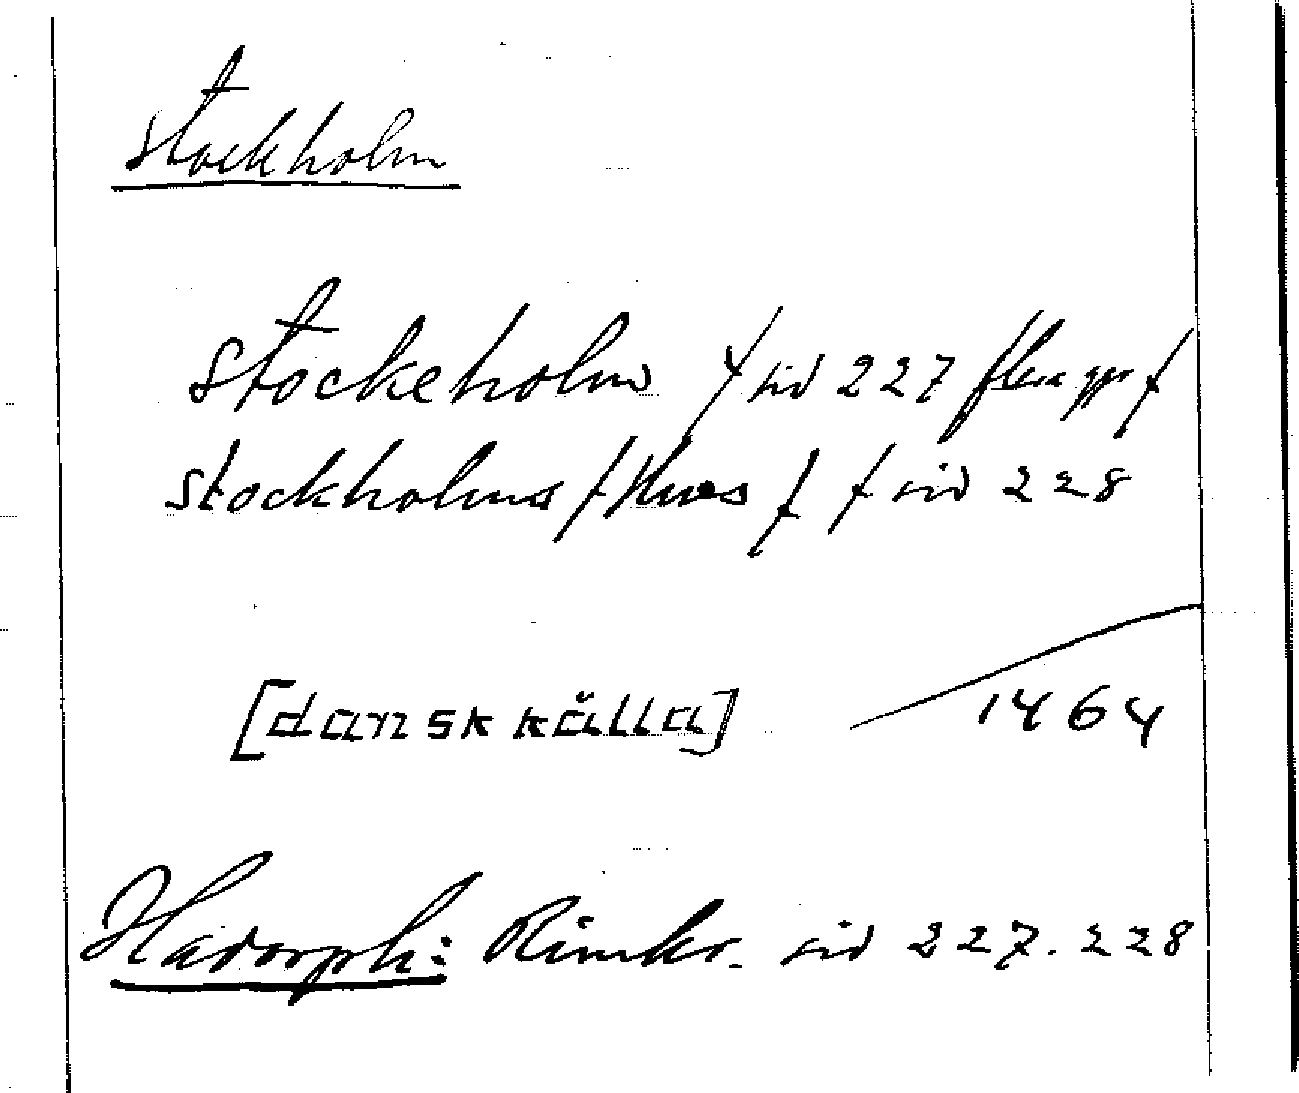 Stockholm
Stockeholm / sid 227 flera ggr /
Stockholms / Huus / / sid 228
[dansk källa] 1464
Hadorph: Rimkr. sid 227. 228